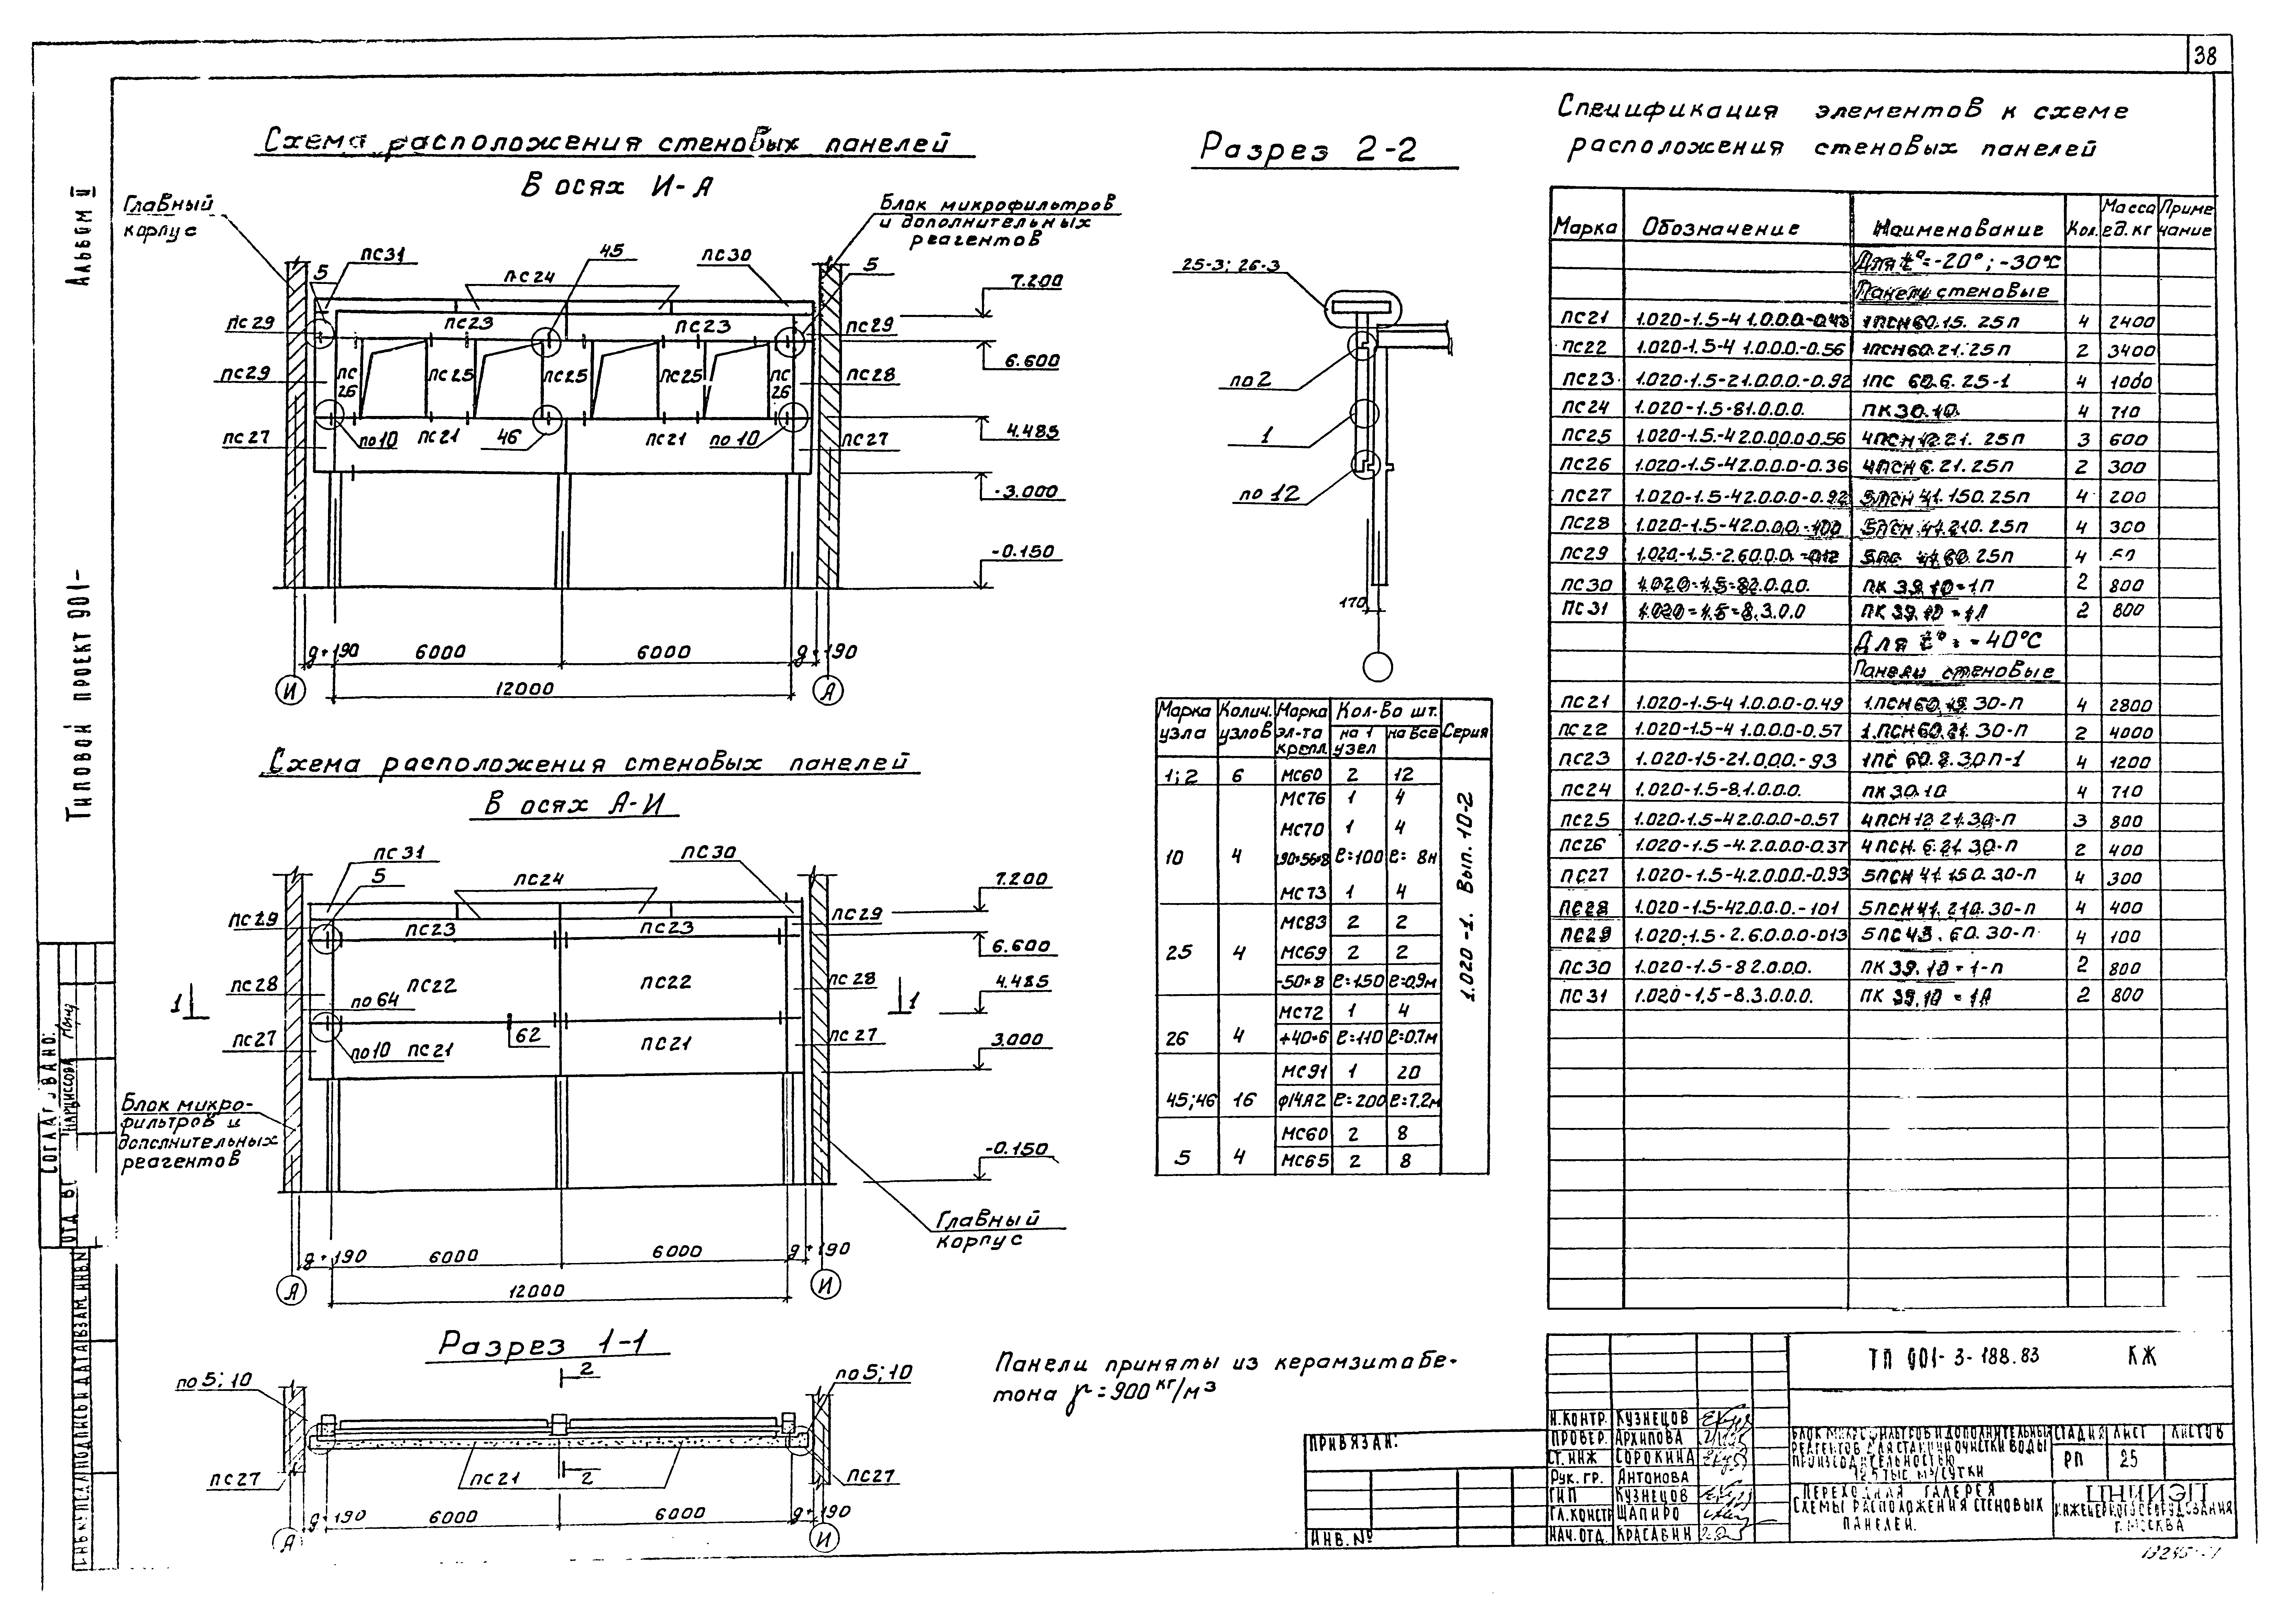 38
Схема расположения стеновых панелей
В осях И-А
Главный
корпус
Блок микрофильтров
и дополнительных
реагентов
ПС31
ПС24
45
ПС30
5
5
7.200
ПС29
ПС23
ПС23
ПС29
6.600
ПС29
ПС
26
ПС25
ПС25
ПС25
ПС
26
ПС28
ПС27
по10
ПС21
46
ПС21
по10
ПС27
4.485
-3.000
-0.150
g+190
6000
6000
g+190
12000
И
А
Схема расположения стеновых панелей
В осях А-И
ПС31
5
ПС24
ПС30
7.200
ПС29
ПС23
ПС23
ПС29
6.600
1
ПС28
ПС22
ПС22
ПС28
1
4.485
по64
ПС27
по10
ПС21
62
ПС21
ПС27
3.000
Блок микро-
фильтров и
дополнительных
реагентов
-0.150
Главный
корпус
g+190
6000
6000
g+190
12000
А
И
Разрез 1-1
по5;10
2
по5;10
ПС27
ПС21
2
ПС27
g+190
6000
6000
g+190
А
И
Разрез 2-2
25-3; 26-3
по2
1
по12
170
Марка узла Колич. узлов Марка эл-та крепл. Кол-во шт. на 1 узел на все Серия
1;2 6 МС60 2 12
МС76 1 4
МС70 1 4
10 4 L90×56×8 ℓ=100 ℓ=
МС73 1 4
МС83 2 2
25 4 МС69 2 2
-50×8 ℓ=150 ℓ=0,9м
МС72 1 4
26 4 ℓ=110 ℓ=0.7м
МС91 1 20
45;46 16 ф14А2 ℓ=200 ℓ=7,2м
МС60 2 8
5 4 МС65 2 8
1.020-1. Вып. 10-2
Панели приняты из керамзитобе-
тона γ=900 кг/м3
Спецификация элементов к схеме
расположения стеновых панелей
Марка Обозначение Наименование Кол. Масса ед. кг Приме чание
Для t°=-20°; -30°С
Панели стеновые
ПС21 1.020-1.5-4 1.0.0.0-0.48 1ПСН60.15.25п 4 2400
ПС22 1.020-1.5-4 1.0.0.0-0.56 1ПСН60.21.25п 2 3400
ПС23 1.020-1.5-21.0.0.0.-0.92 1ПС 60.6.25-1 4 1000
ПС24 1.020-1.5-81.0.0.0. ПК30.10. 4 710
ПС25 1.020-1.5-42.0.0.0.0-0.56 4ПСН12.21.25п 3 600
ПС26 1.020-1.5-42.0.0.0-0.36 4ПСН6.21.25п 2 300
ПС27 1.020-1.5-42.0.0.0-0.92 5ПСН 41.150.25п 4 200
ПС28 1.020-1.5-42.0.0.0.-100 5ПСН.41.210.25п 4 300
ПС29 1.020-1.5-2.60.0.0.-012 5ПС 41.60.25п 4
ПС30 1.020-1.5-82.0.0.0. ПК 39.10-1П 2 800
ПС31 1.020-1.5-8.3.0.0 ПК 39.10-1Л 2 800
Для t°=-40°С
Панели стеновые
ПС21 1.020-1.5-4 1.0.0.0-0.49 1.ПСН60.15.30-П 4 2800
ПС22 1.020-1.5-4 1.0.0.0-0.57 1.ПСН60.21.30-П 2 4000
ПС23 1.020-15-21.0.0.0.-93 1ПС 60.8.30п-1 4 1200
ПС24 1.020-1.5-8.1.0.0.0. ПК30.10 4 710
ПС25 1.020-1.5-42.0.0.0-0.57 4ПСН12 21.30-П 3 800
ПС26 1.020-1.5-4.2.0.0.0-0.37 4ПСН.6.21.30-П 2 400
ПС27 1.020-1.5-4.2.0.0.0.-0.93 5ПСН 41.150.30-П 4 300
ПС28 1.020-1.5-42.0.0.0.-101 5ПСН41.210.30-П 4 400
ПС29 1.020-1.5-2.6.0.0.0-013 5ПС43.60.30-П 4 100
ПС30 1.020-1.5-82.0.0.0. ПК 39.10-1-П 2 800
ПС31 1.020-1.5-8.3.0.0.0. ПК 39.10-1Л 2 800
ТП 901-3-188.83 КЖ
Н.КОНТР. КУЗНЕЦОВ
ПРОВЕР. АРХИПОВА
СТ.ИНЖ СОРОКИНА
РУК.ГР. АНТОНОВА
ГИП КУЗНЕЦОВ
ГЛ.КОНСТР ШАПИРО
НАЧ.ОТД. КРАСАВИН
БЛОК МИКРОФИЛЬТРОВ И ДОПОЛНИТЕЛЬНЫХ
РЕАГЕНТОВ ДЛЯ СТАНЦИИ ОЧИСТКИ ВОДЫ
ПРОИЗВОДИТЕЛЬНОСТЬЮ
12.5 ТЫС. М3/СУТКИ
СТАДИЯ ЛИСТ ЛИСТОВ
РП 25
ПЕРЕХОДНАЯ ГАЛЕРЕЯ
СХЕМЫ РАСПОЛОЖЕНИЯ СТЕНОВЫХ
ПАНЕЛЕЙ.
ЦНИИЭП
ИНЖЕНЕРНОГО ОБОРУДОВАНИЯ
Г.МОСКВА
ПРИВЯЗАН:
ИНВ.№
Альбом II
Типовой проект 901-
СОГЛАСОВАНО:
НАРЦИССОВА
ИНВ.№ПОДЛ ПОДПИСЬ И ДАТА ВЗАМ.ИНВ.№